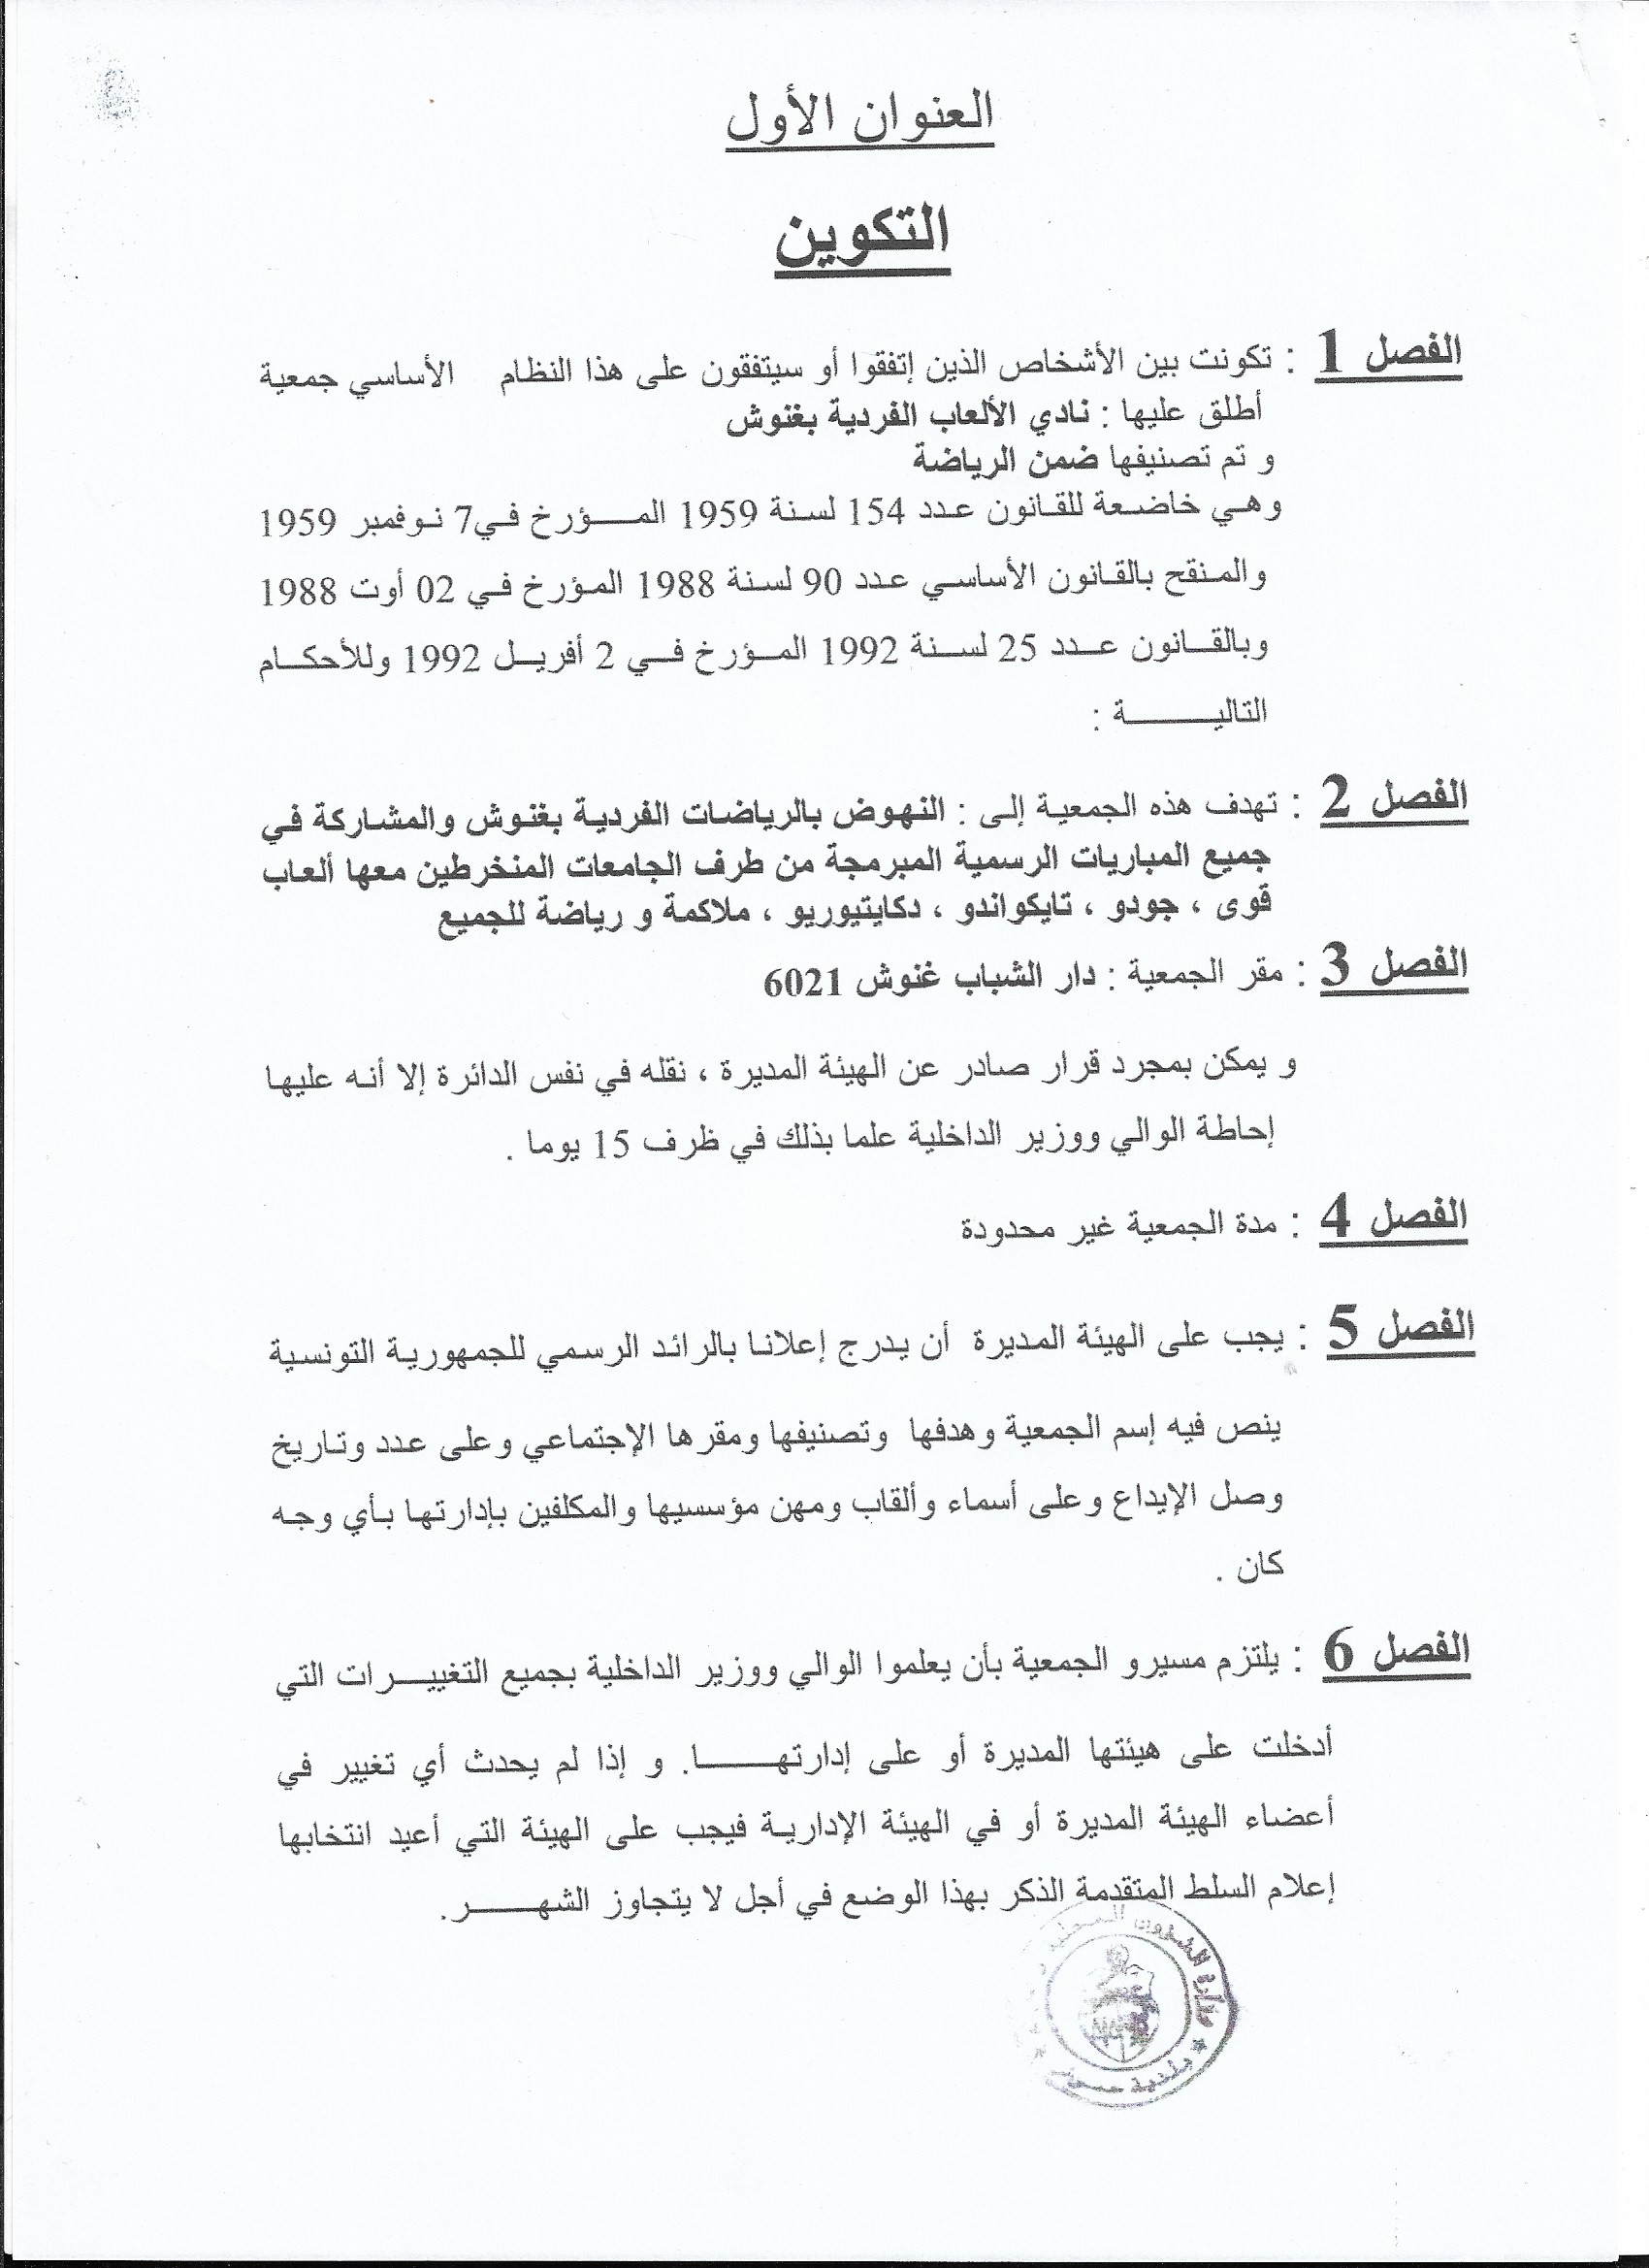 العنوان الأول
التكوين
الفصل 1 : تكونت بين الأشخاص الذين إتفقوا أو سيتفقون على هذا النظام الأساسي جمعية
أطلق عليها : نادي الألعاب الفردية بغنوش
و تم تصنيفها ضمن الرياضة
وهي خاضعة للقانون عدد 154 لسنة 1959 المـــؤرخ في7 نوفمبر 1959
والمنقح بالقانون الأساسي عدد 90 لسنة 1988 المؤرخ في 02 أوت 1988
وبالقــانون عــدد 25 لســنة 1992 المــؤرخ فــي 2 أفريــل 1992 وللأحكــام
التاليـــــــة :
الفصل 2 : تهدف هذه الجمعية إلى : النهوض بالرياضات الفردية بغنوش والمشاركة في
جميع المباريات الرسمية المبرمجة من طرف الجامعات المنخرطين معها ألعاب
قوى ، جودو ، تايكواندو ، دكايتيوريو ، ملاكمة و رياضة للجميع
الفصل 3 : مقر الجمعية : دار الشباب غنوش 6021
و يمكن بمجرد قرار صادر عن الهيئة المديرة ، نقله في نفس الدائرة إلا أنه عليها
إحاطة الوالي ووزير الداخلية علما بذلك في ظرف 15 يوما .
الفصل 4 : مدة الجمعية غير محدودة
الفصل 5 : يجب على الهيئة المديرة أن يدرج إعلانا بالرائد الرسمي للجمهورية التونسية
ينص فيه إسم الجمعية وهدفها وتصنيفها ومقرها الإجتماعي وعلى عدد وتاريخ
وصل الإيداع وعلى أسماء وألقاب ومهن مؤسسيها والمكلفين بإدارتها بأي وجه
كان .
الفصل 6 : يلتزم مسيرو الجمعية بأن يعلموا الوالي ووزير الداخلية بجميع التغييـــرات التي
أدخلت على هيئتها المديرة أو على إدارتهــــــا. و إذا لم يحدث أي تغيير في
أعضاء الهيئة المديرة أو في الهيئة الإدارية فيجب على الهيئة التي أعيد انتخابها
إعلام السلط المتقدمة الذكر بهذا الوضع في أجل لا يتجاوز الشهــــــر.
وزارة الشؤون المحلية
بلدية